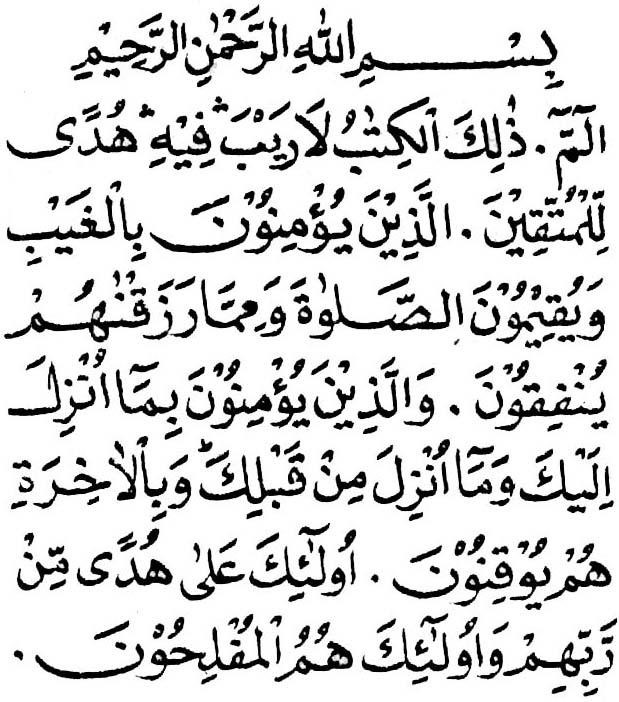 بِسْمِ اللهِ الرَّحْمٰنِ الرَّحِيْمِ
الٓمّٓ۔ ذٰلِكَ الْكِتٰبُ لَا رَيْبَ ۛ فِيْهِ ۛ هُدًى
لِّلْمُتَّقِيْنَ۔ الَّذِيْنَ يُؤْمِنُوْنَ بِالْغَيْبِ
وَيُقِيْمُوْنَ الصَّلٰوةَ وَمِمَّا رَزَقْنٰهُمْ
يُنْفِقُوْنَ۔ وَالَّذِيْنَ يُؤْمِنُوْنَ بِمَآ اُنْزِلَ
اِلَيْكَ وَمَآ اُنْزِلَ مِنْ قَبْلِكَ ۚ وَبِالْاٰخِرَةِ
هُمْ يُوْقِنُوْنَ۔ اُولٰٓئِكَ عَلٰى هُدًى مِّنْ
رَّبِّهِمْ وَاُولٰٓئِكَ هُمُ الْمُفْلِحُوْنَ۔